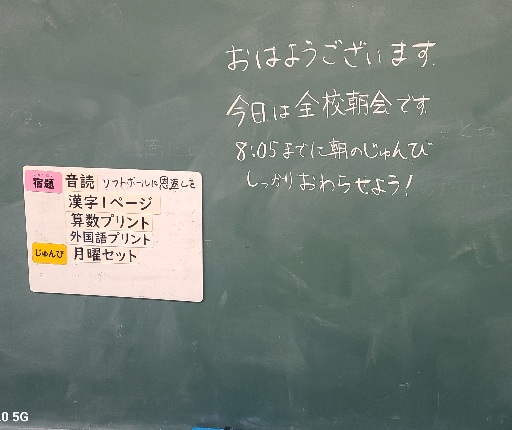 おはようございます。
今日は全校朝会です
8:05までに朝のじゅんび
しっかりおわらせよう!
宿題 音読 ソフトボールに恩返しを
漢字1ページ
算数プリント
外国語プリント
じゅんび 月曜セット
.0 5G